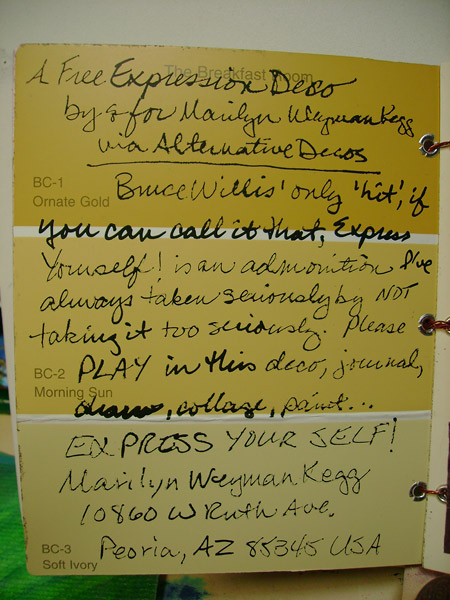 The Breakfast Room
A Free Expression Deco
by & for Marilyn Weyman Kegg
via Alternative Decos
BC-1
Ornate Gold
Bruce Willis' only 'hit', if
you can call it that, Express
Yourself! is an admonition I've
always taken seriously by NOT
taking it too seriously. Please
BC-2
Morning Sun
PLAY in this deco, journal,
draw, collage, paint...
EXPRESS YOUR SELF!
Marilyn Weyman Kegg
10860 W Ruth Ave.
Peoria, AZ 85345 USA
BC-3
Soft Ivory